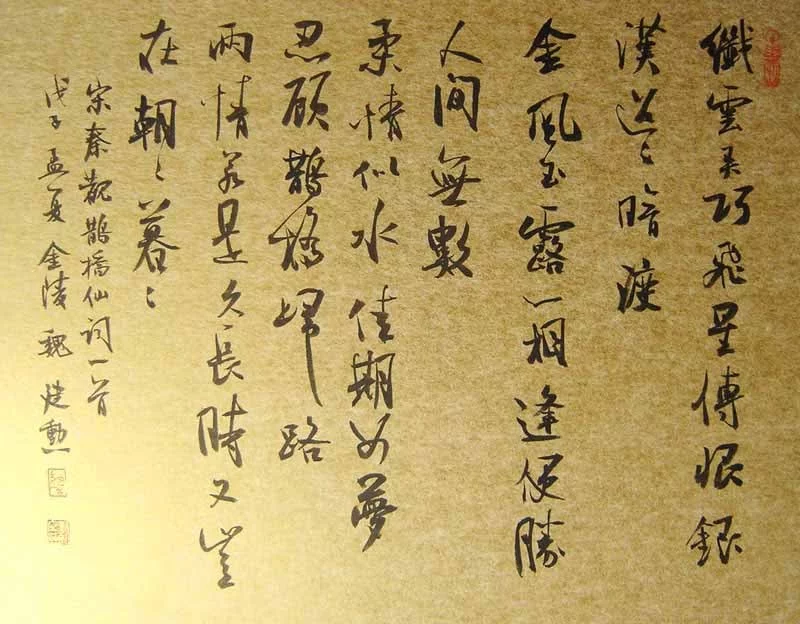 纖雲弄巧飛星傳恨銀
漢迢〻暗渡
金風玉露一相逢便勝
人間無數
柔情似水佳期如夢
忍顧鵲橋歸路
兩情若是久長時又豈
在朝〻暮〻
宋秦觀鵲橋仙詞一首
戊子孟夏金陵魏